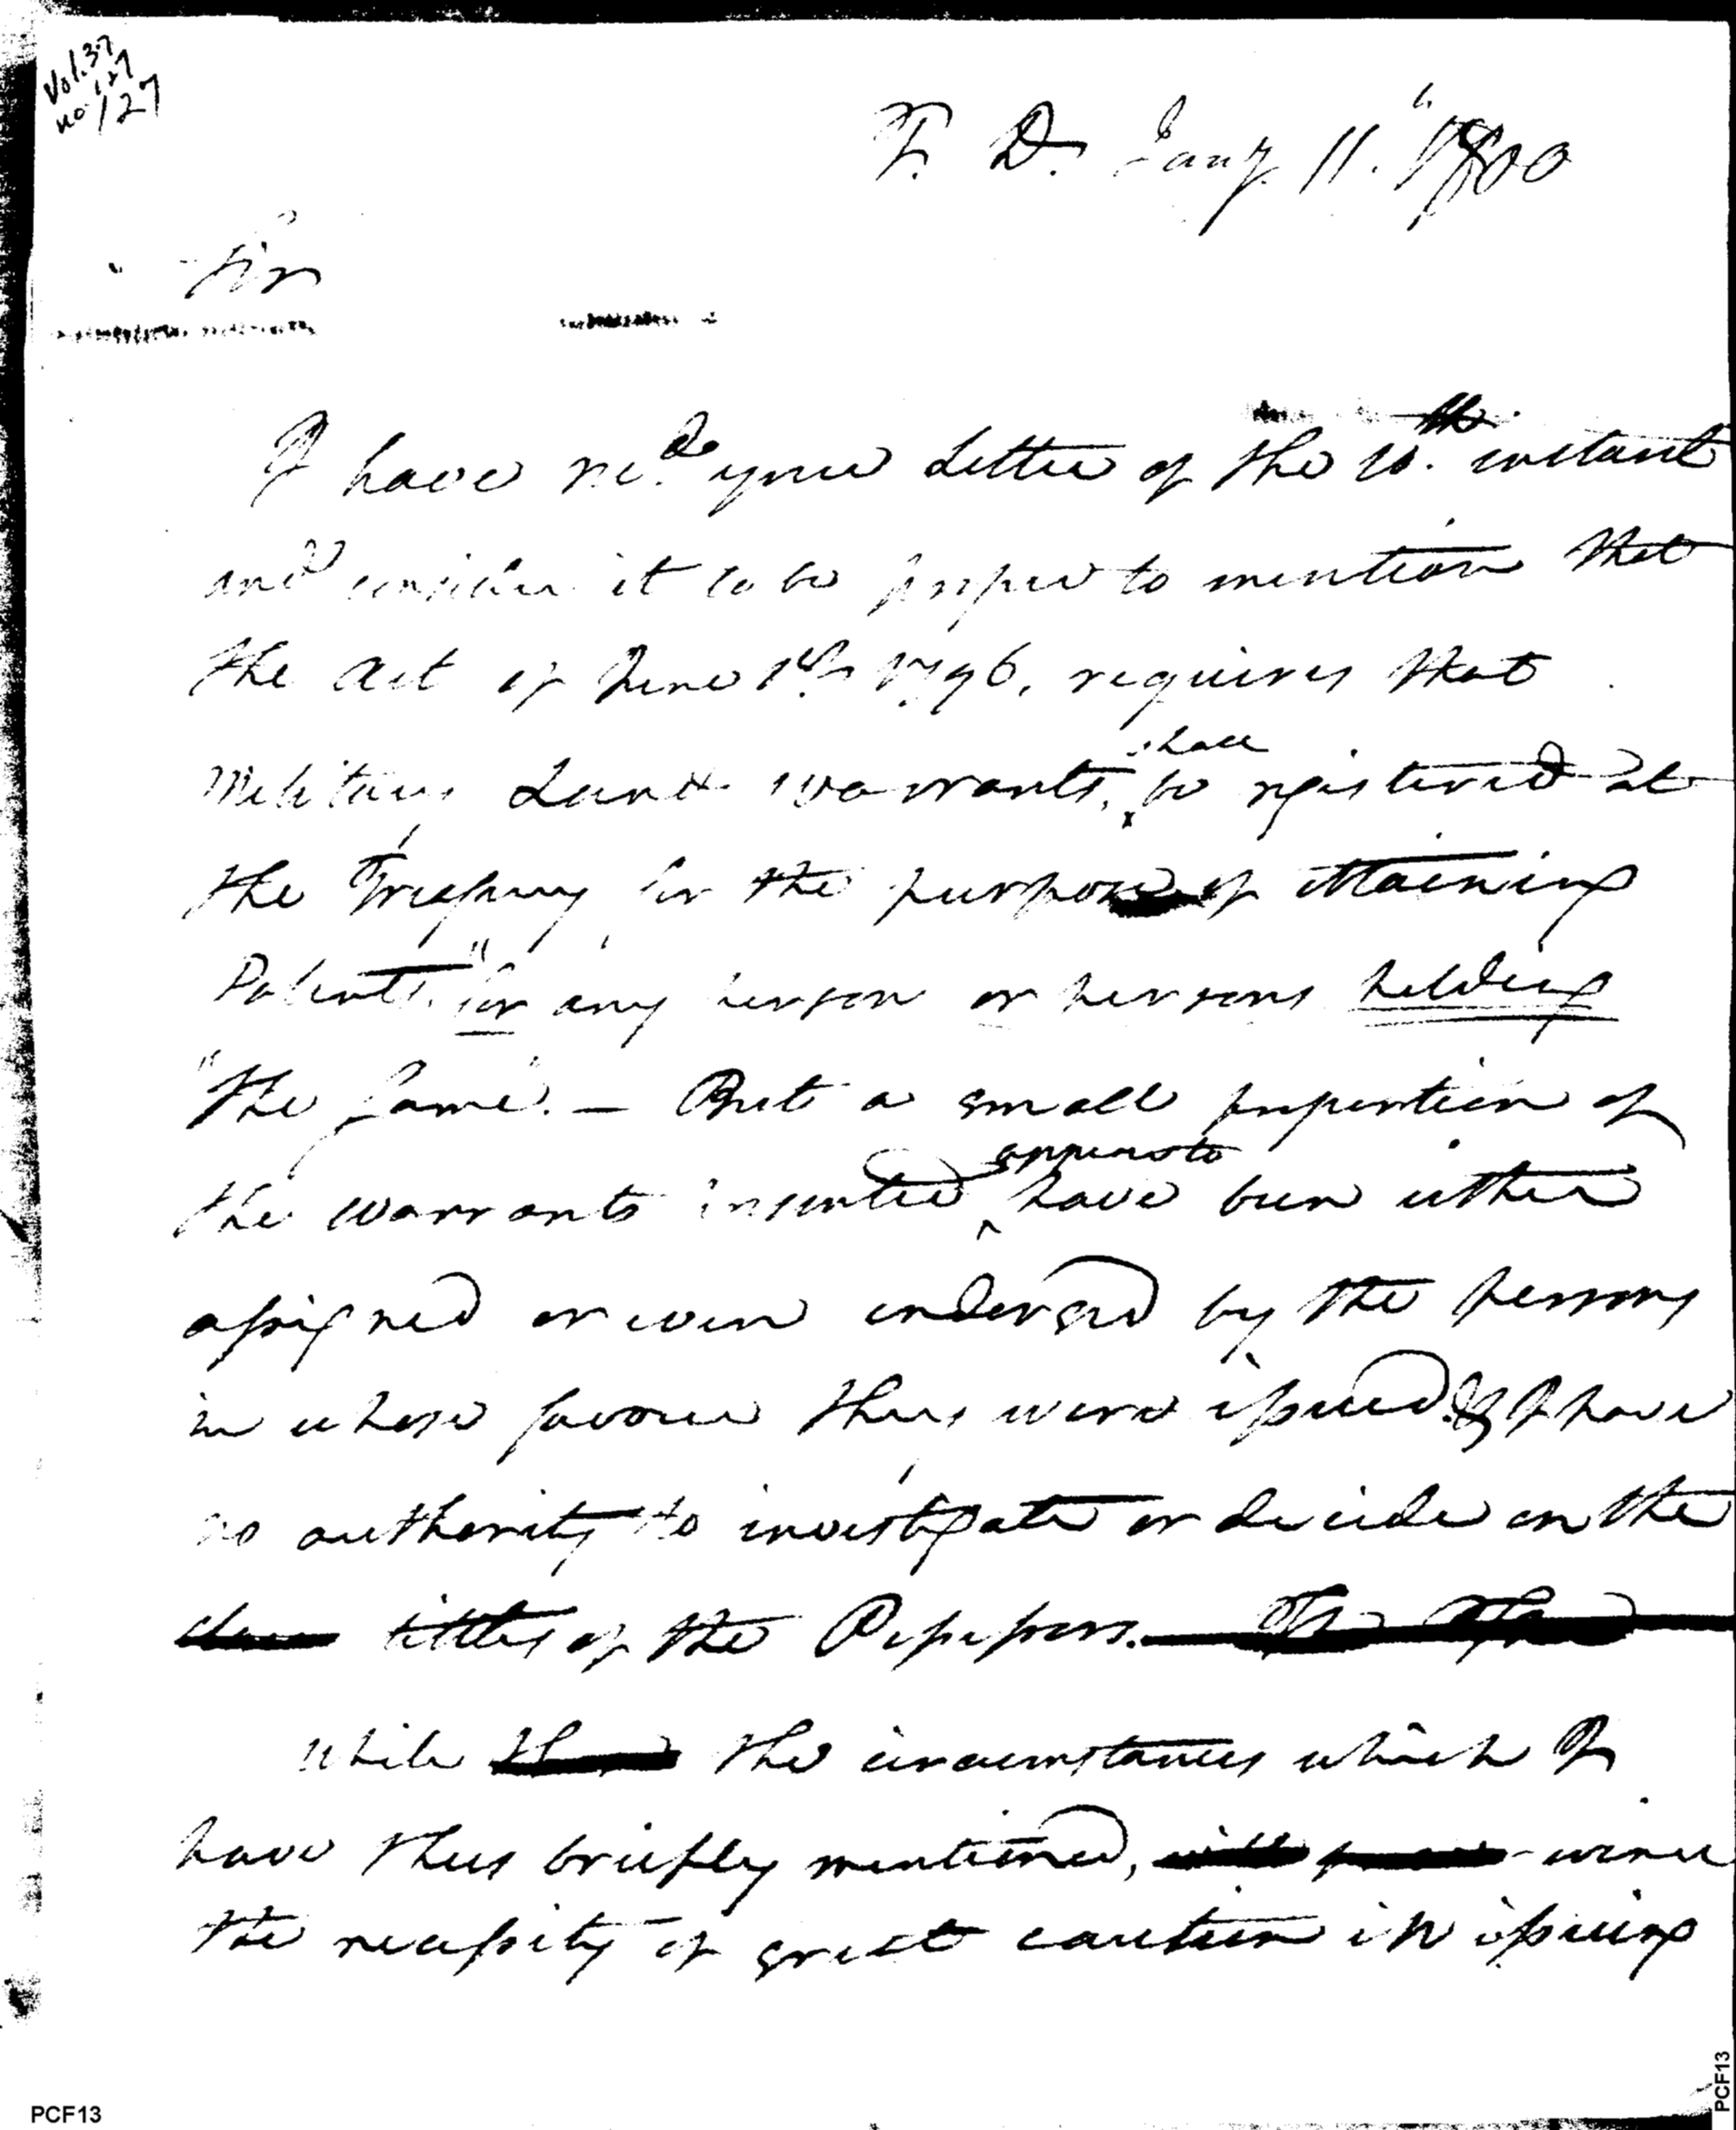 Vol. 37
no 127
no 127
T. D. Jany. 11. 1800
Sir
I have recd. your Letter of the 10th. instant
and consider it to be proper to mention that
the Act of June 1st. 1796, requires that
Military Land warrants, shall be registered at
the Treasury for the purpose of obtaining
Patents "for any person or persons holding
"the same". — But a small proportion of
the warrants presented appears to have been either
assigned or even endorsed by the persons
in whose favour they were issued & I have
no authority to investigate or decide on the
titles of the Possessors.
While the circumstances which I
have thus briefly mentioned,
the necessity of great caution in issuing
PCF13
PCF13